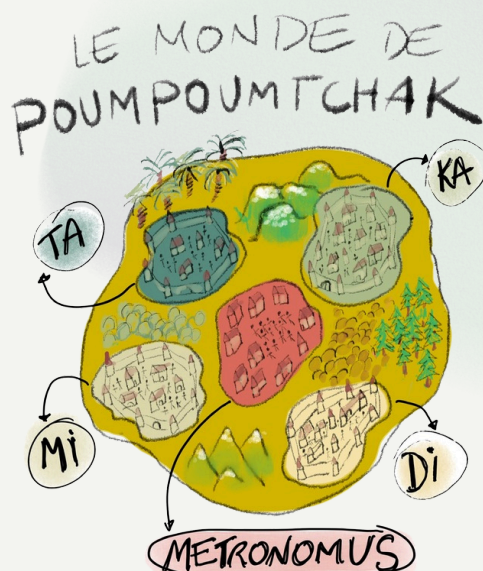 LE MONDE DE
POUMPOUMTCHAK
KA
TA
Mi
Di
METRONOMUS